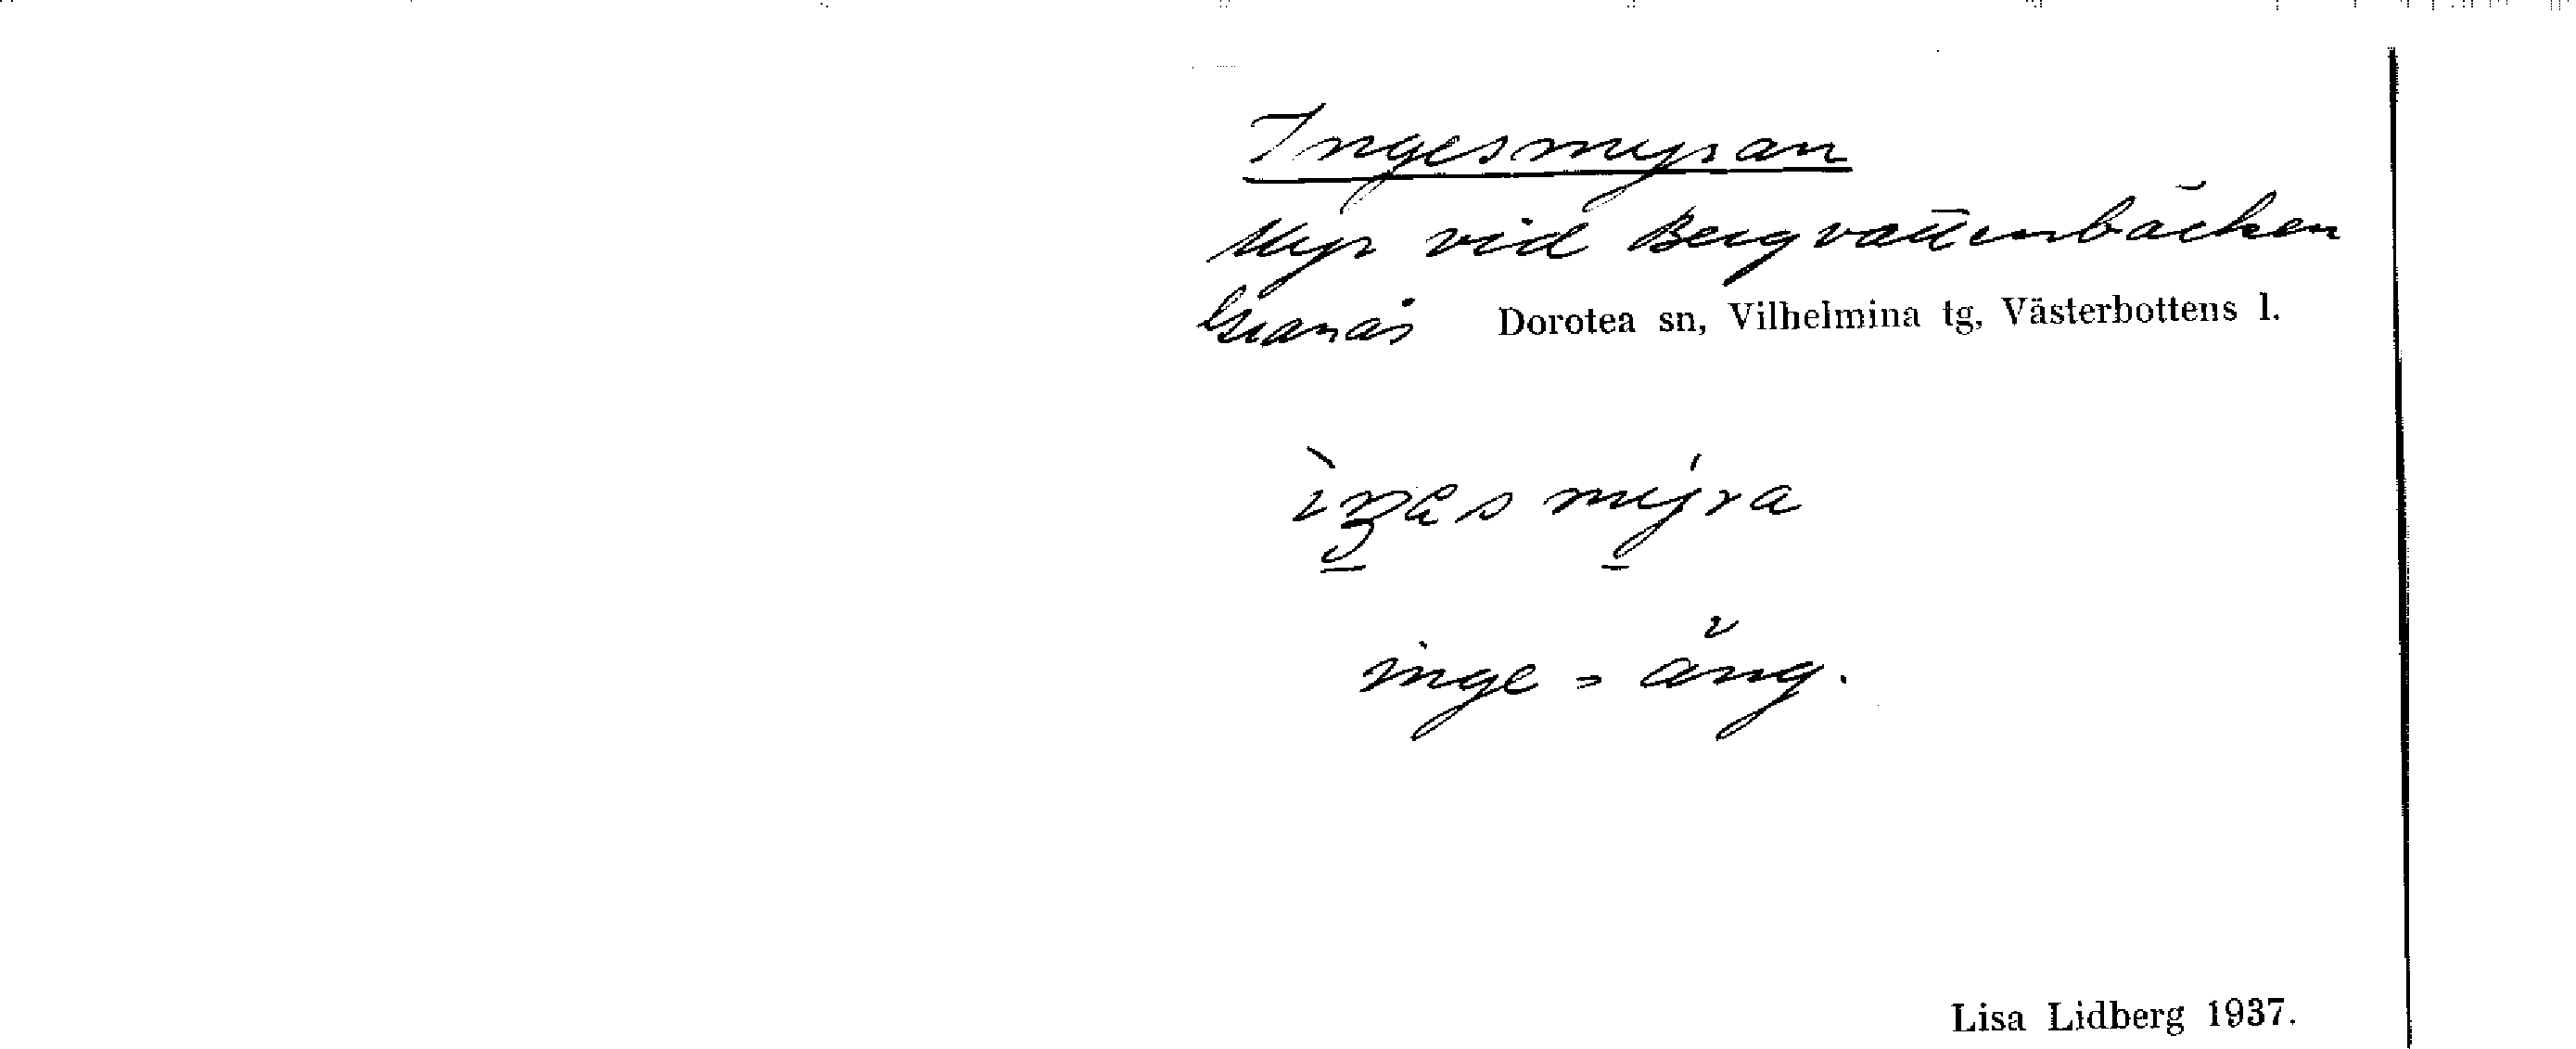 Ingesmyran
Myr vid Bergvattenbäcken
Granås Dorotea sn, Vilhelmina tg, Västerbottens l.
inge = äng.
Lisa Lidberg 1937.